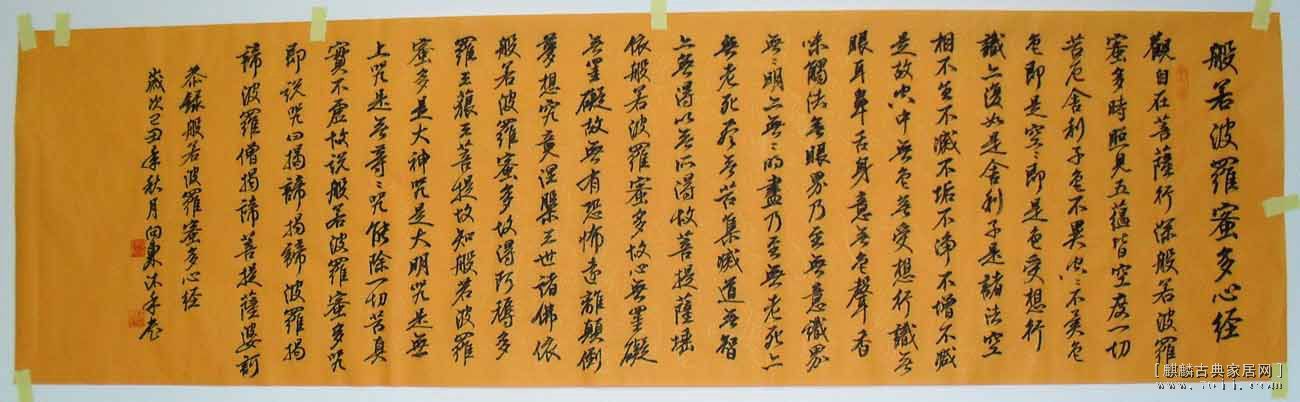 般若波羅蜜多心経
觀自在菩薩行深般若波羅
蜜多時照見五蘊皆空度一切
苦厄舍利子色不異空〻不異色
色即是空〻即是色受想行
識亦復如是舍利子是諸法空
相不生不滅不垢不淨不增不減
是故空中無色無受想行識無
眼耳鼻舌身意無色聲香
味觸法無眼界乃至無意識界
無〻明亦無〻明盡乃至無老死亦
無老死盡無苦集滅道無智
亦無得以無所得故菩提薩埵
依般若波羅蜜多故心無罣礙
無罣礙故無有恐怖遠離顛倒
夢想究竟涅槃三世諸佛依
般若波羅蜜多故得阿耨多
羅三藐三菩提故知般若波羅
蜜多是大神咒是大明咒是無
上咒是無等〻咒能除一切苦真
實不虛故說般若波羅蜜多咒
即說咒曰揭諦揭諦波羅揭
諦波羅僧揭諦菩提薩婆訶
恭録般若波羅蜜多心経
歲次己丑年秋月向東沐手書
[麒麟古典家居网]